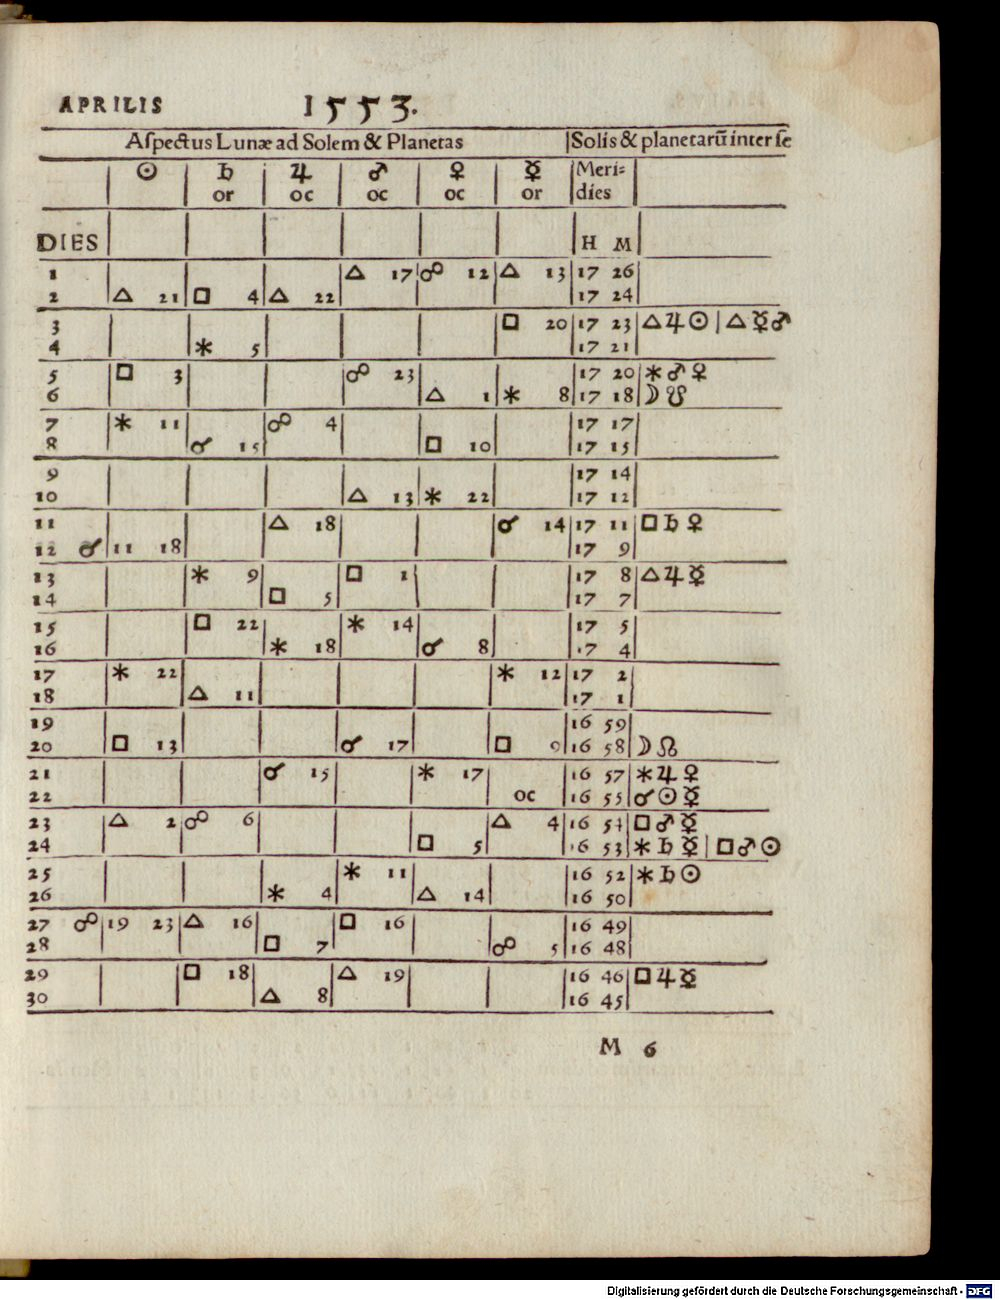 APRILIS 1553.
Aſpectus Lunæ ad Solem & Planetas | Solis & planetarũ inter ſe
☉ ♄ ♃ ♂ ♀ ☿ Meri=
or oc oc oc or dies
DIES H M
1 △ 17 ☍ 12 △ 13 17 26
2 △ 21 □ 4 △ 22 17 24
3 □ 20 17 23 △♃☉ | △☿♂
4 ⚹ 5 17 21
5 □ 3 ☍ 23 17 20 ⚹♂♀
6 △ 1 ⚹ 8 17 18 ☽☋
7 ⚹ 11 ☍ 4 17 17
8 ☌ 15 □ 10 17 15
9 17 14
10 △ 13 ⚹ 22 17 12
11 △ 18 ☌ 14 17 11 □♄♀
12 ☌ 11 18 17 9
13 ⚹ 9 □ 1 17 8 △♃☿
14 □ 5 17 7
15 □ 22 ⚹ 14 17 5
16 ⚹ 18 ☌ 8 17 4
17 ⚹ 22 ⚹ 12 17 2
18 △ 11 17 1
19 16 59
20 □ 13 ☌ 17 □ 9 16 58 ☽☊
21 ☌ 15 ⚹ 17 16 57 ⚹♃♀
22 oc 16 55 ☌☉☿
23 △ 2 ☍ 6 △ 4 16 54 □♂☿
24 □ 5 16 53 ⚹♄☿ | □♂☉
25 ⚹ 11 16 52 ⚹♄☉
26 ⚹ 4 △ 14 16 50
27 ☍ 19 23 △ 16 □ 16 16 49
28 □ 7 ☍ 5 16 48
29 □ 18 △ 19 16 46 □♃☿
30 △ 8 16 45
M 6
Digitalisierung gefördert durch die Deutsche Forschungsgemeinschaft - DFG